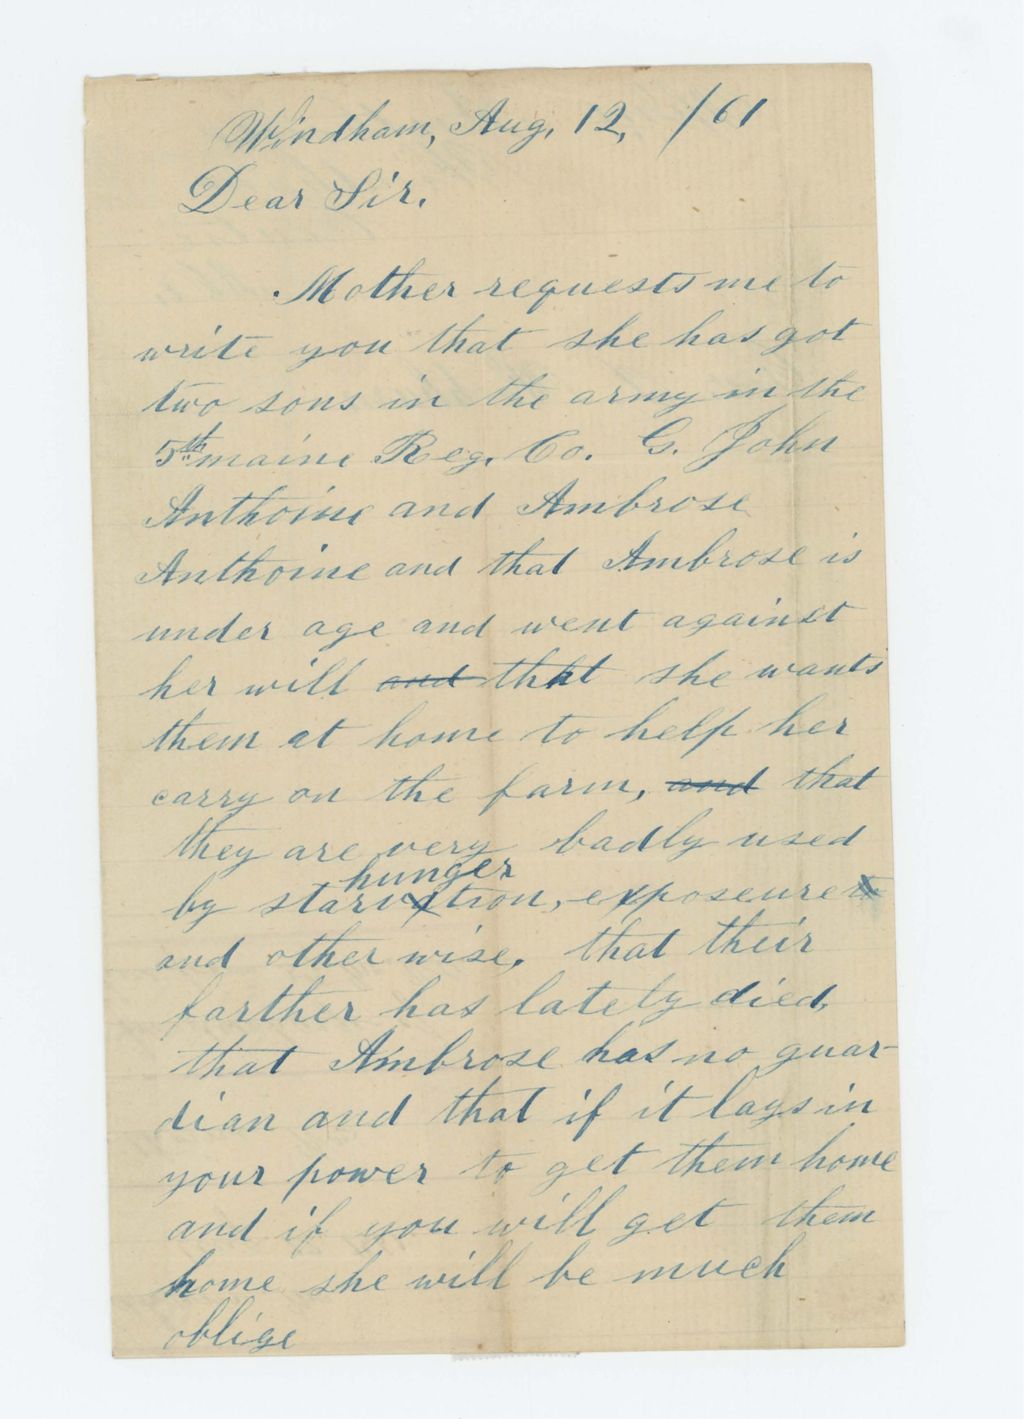 Windham, Aug, 12, /61
Dear Sir.
Mother requests me to
write you that she has got
two sons in the army in the
5th maine Reg. Co. G. John
Anthoine and Ambrose
Anthoine and that Ambrose is
under age and went against
her will and that she wants
them at home to help her
carry on the farm, and that
they are very badly used
hunger
by starvation, exposeure
and other wise. that their
farther has lately died,
that Ambrose has no guar-
dian and that if it lays in
your power to get them home
and if you will get them
home she will be much
oblige